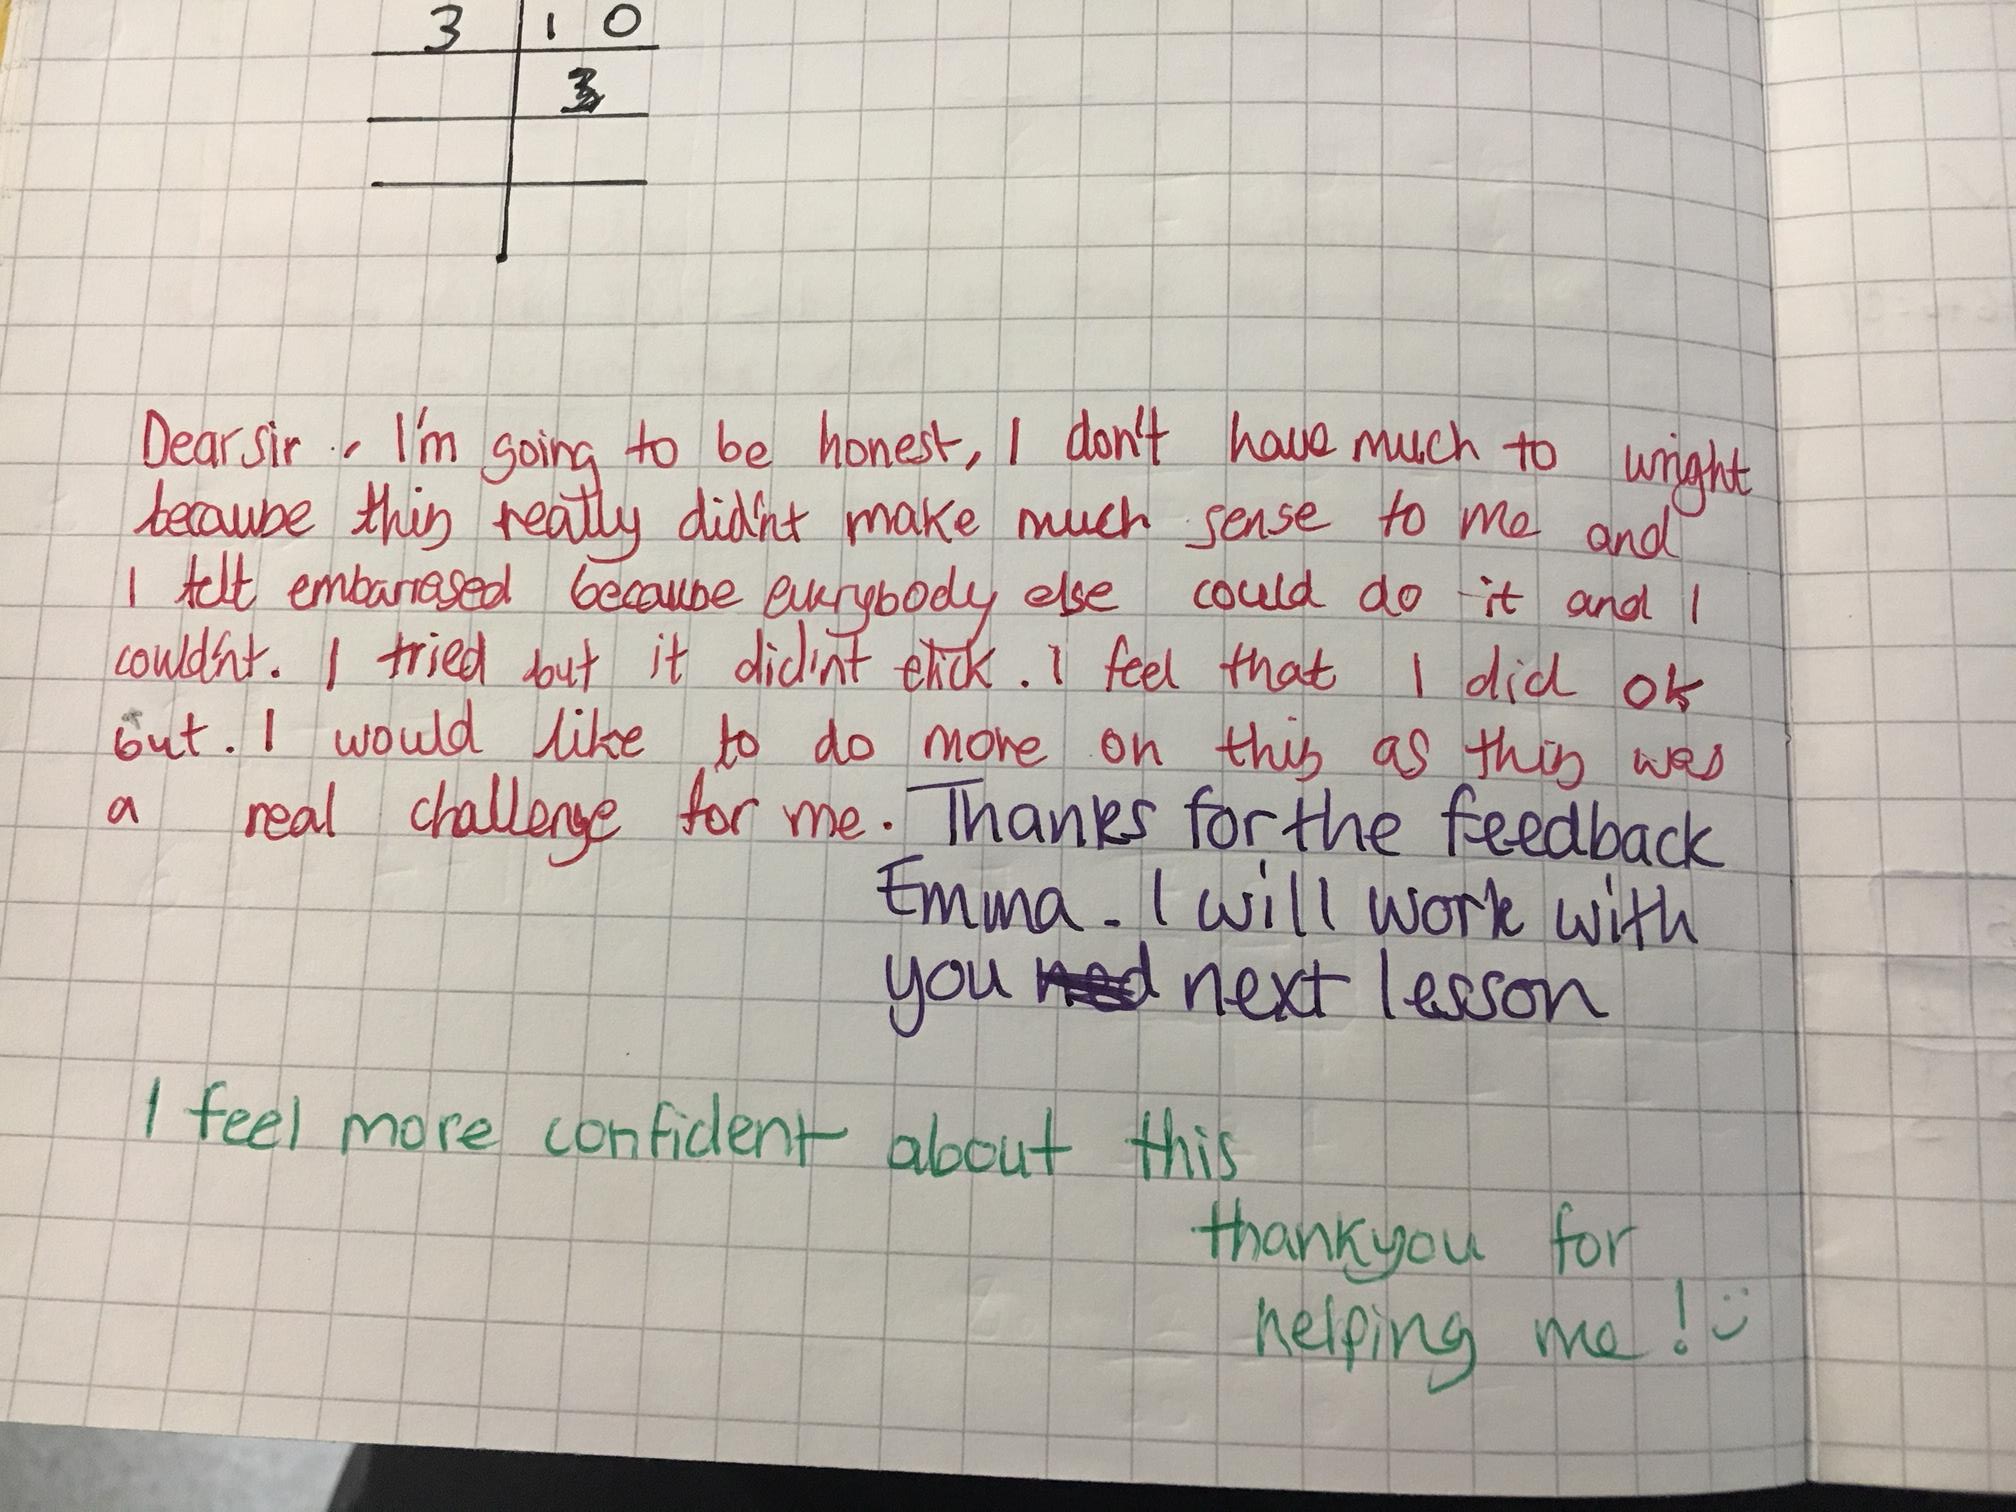 3 1 0
3
Dear sir, I'm going to be honest, I don't have much to wright
because this really did'nt make much sense to me and
I felt embarrased because everybody else could do it and I
could'nt. I tried but it did'nt click. I feel that I did ok
but. I would like to do more on this as this was
a real challenge for me. Thanks for the feedback
Emma. I will work with
you next lesson
I feel more confident about this
thankyou for
helping me! :)